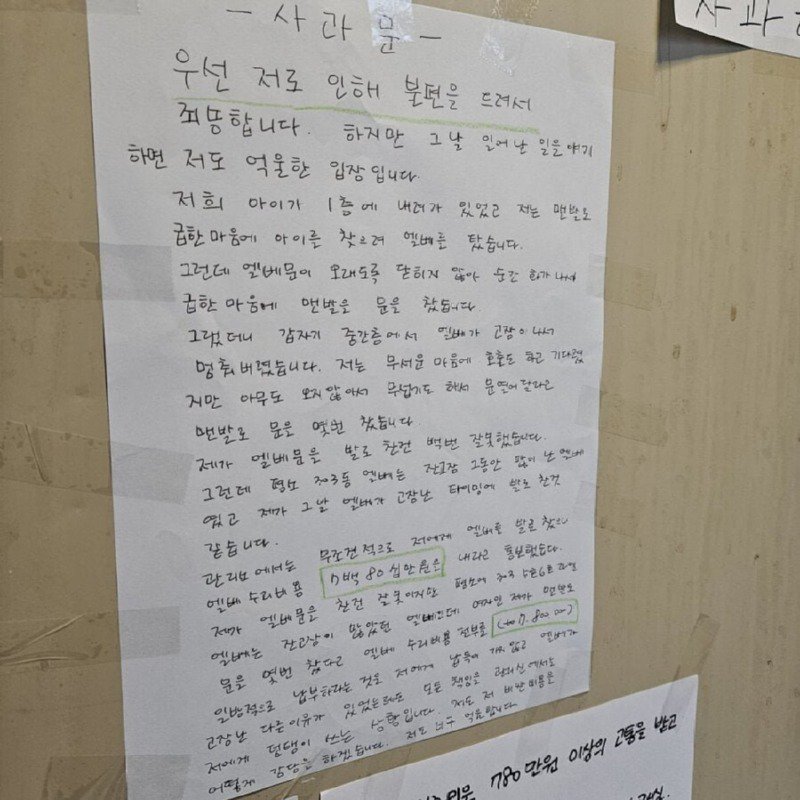 - 사 과 문 -
우선 저로 인해 불편을 드려서
죄송합니다. 하지만 그날 일어난 일을 얘기
하면 저도 억울한 입장입니다.
저희 아이가 1층에 내려가 있었고 저는 맨발로
급한 마음에 아이를 찾으려 엘베를 탔습니다.
그런데 엘베문이 오래도록 닫히지 않아 순간 화가 나서
급한 마음에 맨발로 문을 찼습니다.
그랬더니 갑자기 중간층에서 엘베가 고장이 나서
멈춰버렸습니다. 저는 무서운 마음에 호출도 하고 기다렸
지만 아무도 오지 않아서 무섭기도 해서 문열어달라고
맨발로 문을 몇번 찼습니다.
제가 엘베문을 발로 찬건 백번 잘못했습니다.
그런데 평소 303동 엘베는 잔고장 그동안 많이 난 엘베
였고 제가 그날 엘베가 고장난 타이밍에 발로 찬것
같습니다.
관리소에서는 무조건적으로 저에게 엘베를 발로 찼으니
엘베 수리비용 7백 80 십만원을 내라고 통보했습니다.
제가 엘베문을 찬건 잘못이지만 평소에 303
엘베는 잔고장이 많았던 엘베인데 여자인 제가 맨발로
문을 몇번 찼다고 엘베 수리비용 전부를
일방적으로 납부하라는 것은 저에게 납득이 가지 않고 엘베가
고장난 다른이유가 있었는데도 모든 책임을 관리실에서도
저에게 덤탱이 쓰는 상황입니다. 저도 저 비싼 비용을
어떻게 감당을 하겠습니다. 저도 너무 억울합니다.
사과
780만원 이상의 고통을 받고